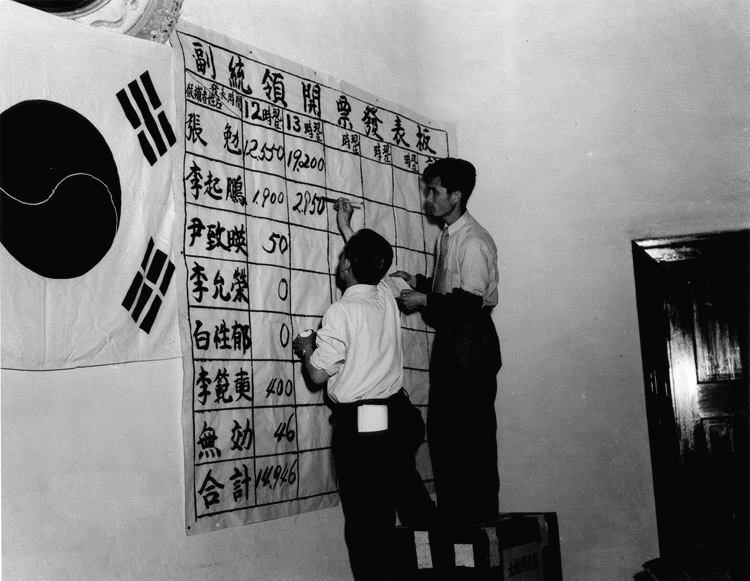 副統領開票發表板
候補者姓名 發表時間 12時 13時 時 時 時
張勉 12,550 19,200
李起鵬 1,900 2,950
尹致暎 50
李允榮 0
白性郁 0
李範奭 400
無効 46
合計 14,946